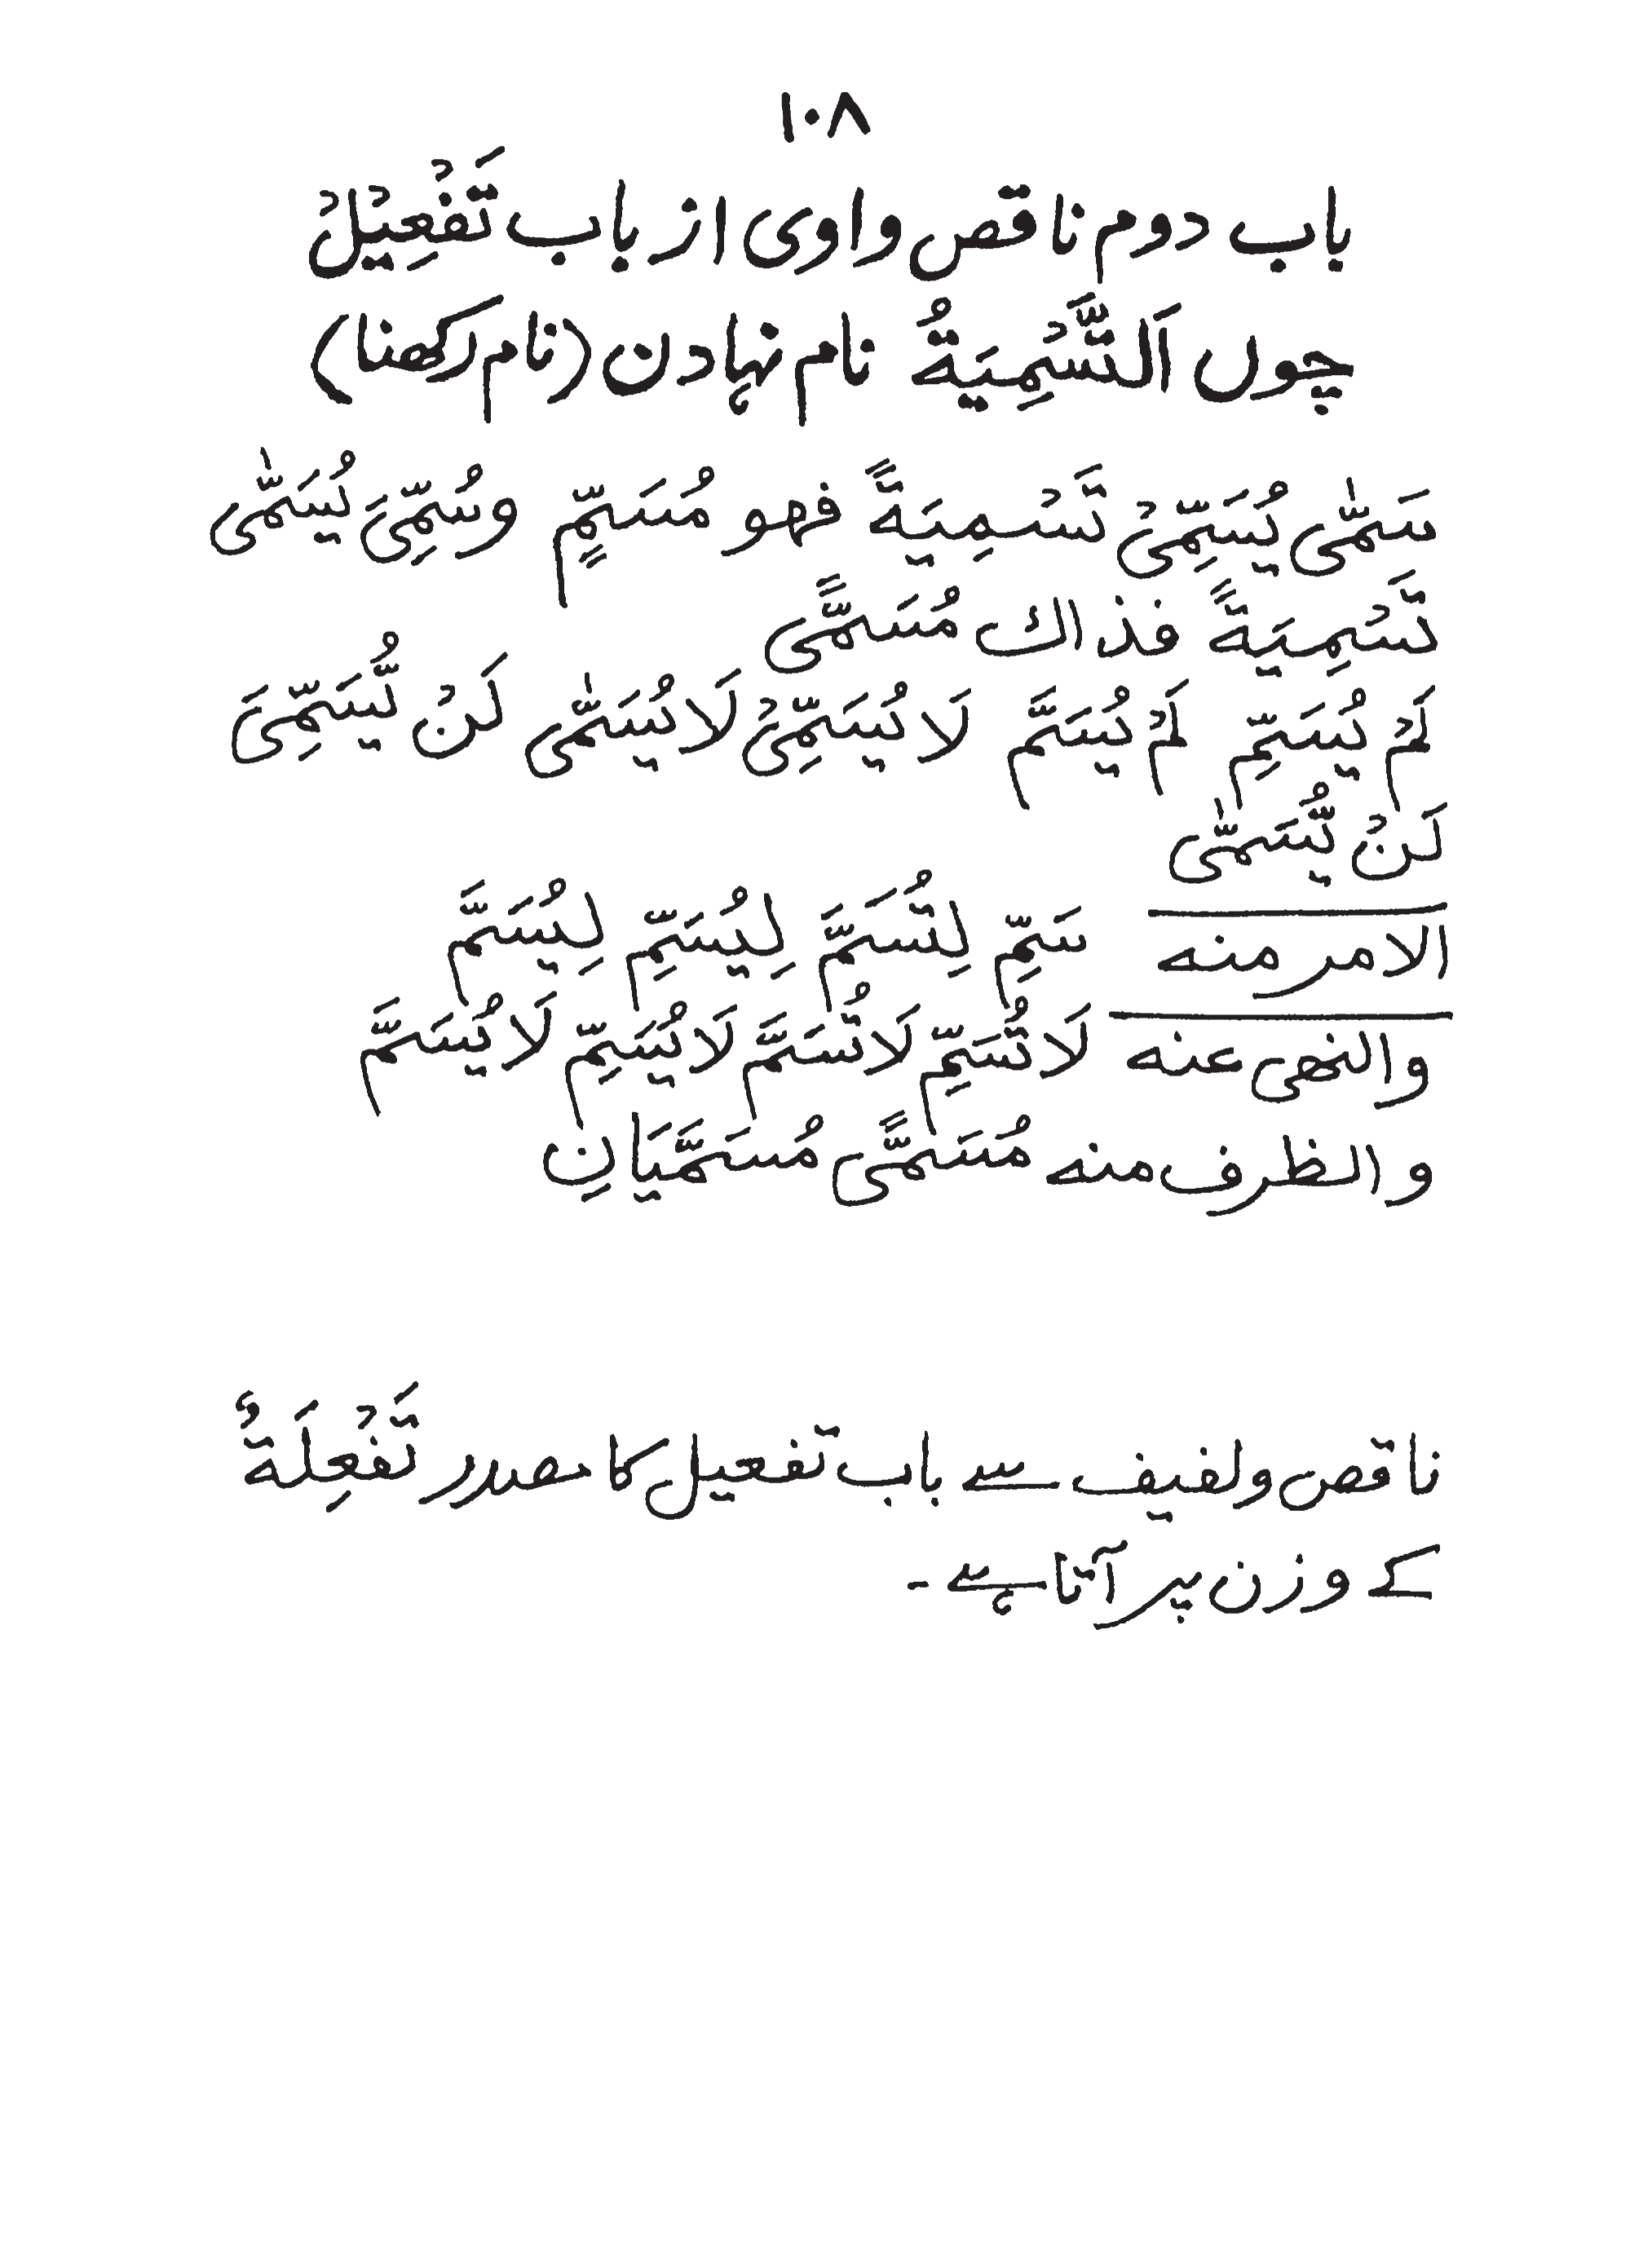 ۱۰۸
باب دوم ناقص واوی از باب تَفْعِیْلْ
چوں اَلتَّسْمِيَةُ نام نہادن (نام رکھنا)
سَمّٰى يُسَمِّىْ تَسْمِيَةً فهو مُسَمٍّ وسُمِّىَ يُسَمّٰى
تَسْمِيَةً فذاك مُسَمًّى
لَمْ يُسَمِّ لَمْ يُسَمَّ لَا يُسَمِّىْ لَا يُسَمّٰى لَنْ يُّسَمِّىَ
لَنْ يُّسَمّٰى
الامر منه سَمِّ لِتُسَمَّ لِيُسَمِّ لِيُسَمَّ
والنهى عنه لَا تُسَمِّ لَا تُسَمَّ لَا يُسَمِّ لَا يُسَمَّ
و الظرف منه مُسَمًّى مُسَمَّيَانِ
ناقص ولفیف سے باب تفعیل کا مصدر تَفْعِلَةٌ
کے وزن پر آتا ہے ۔